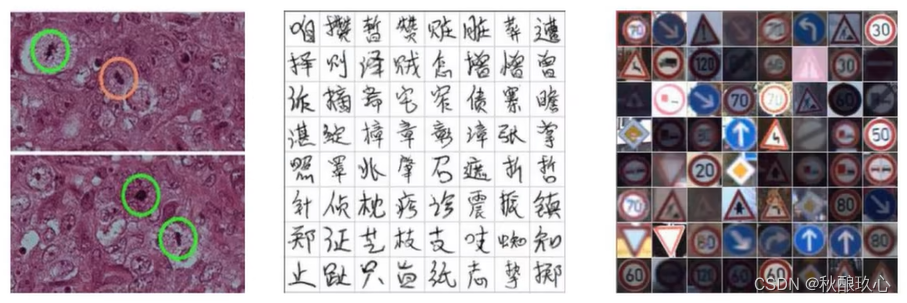 咱 攒 暂 赞 赃 脏 葬 遭
择 则 泽 贼 怎 增 憎 曾
诈 摘 斋 宅 窄 债 瞻
湛 绽 樟 章 彰 漳 张 掌
照 罩 兆 肇 召 遮 折 哲
针 侦 枕 疹 诊 震 振 镇
郑 证 芝 枝 支 吱 蜘 知
止 趾 只 旨 纸 志 挚 掷
70 70 30
120 30
70 70 60
50
20
70 80
80
60 120 60
CSDN @秋酿玖心